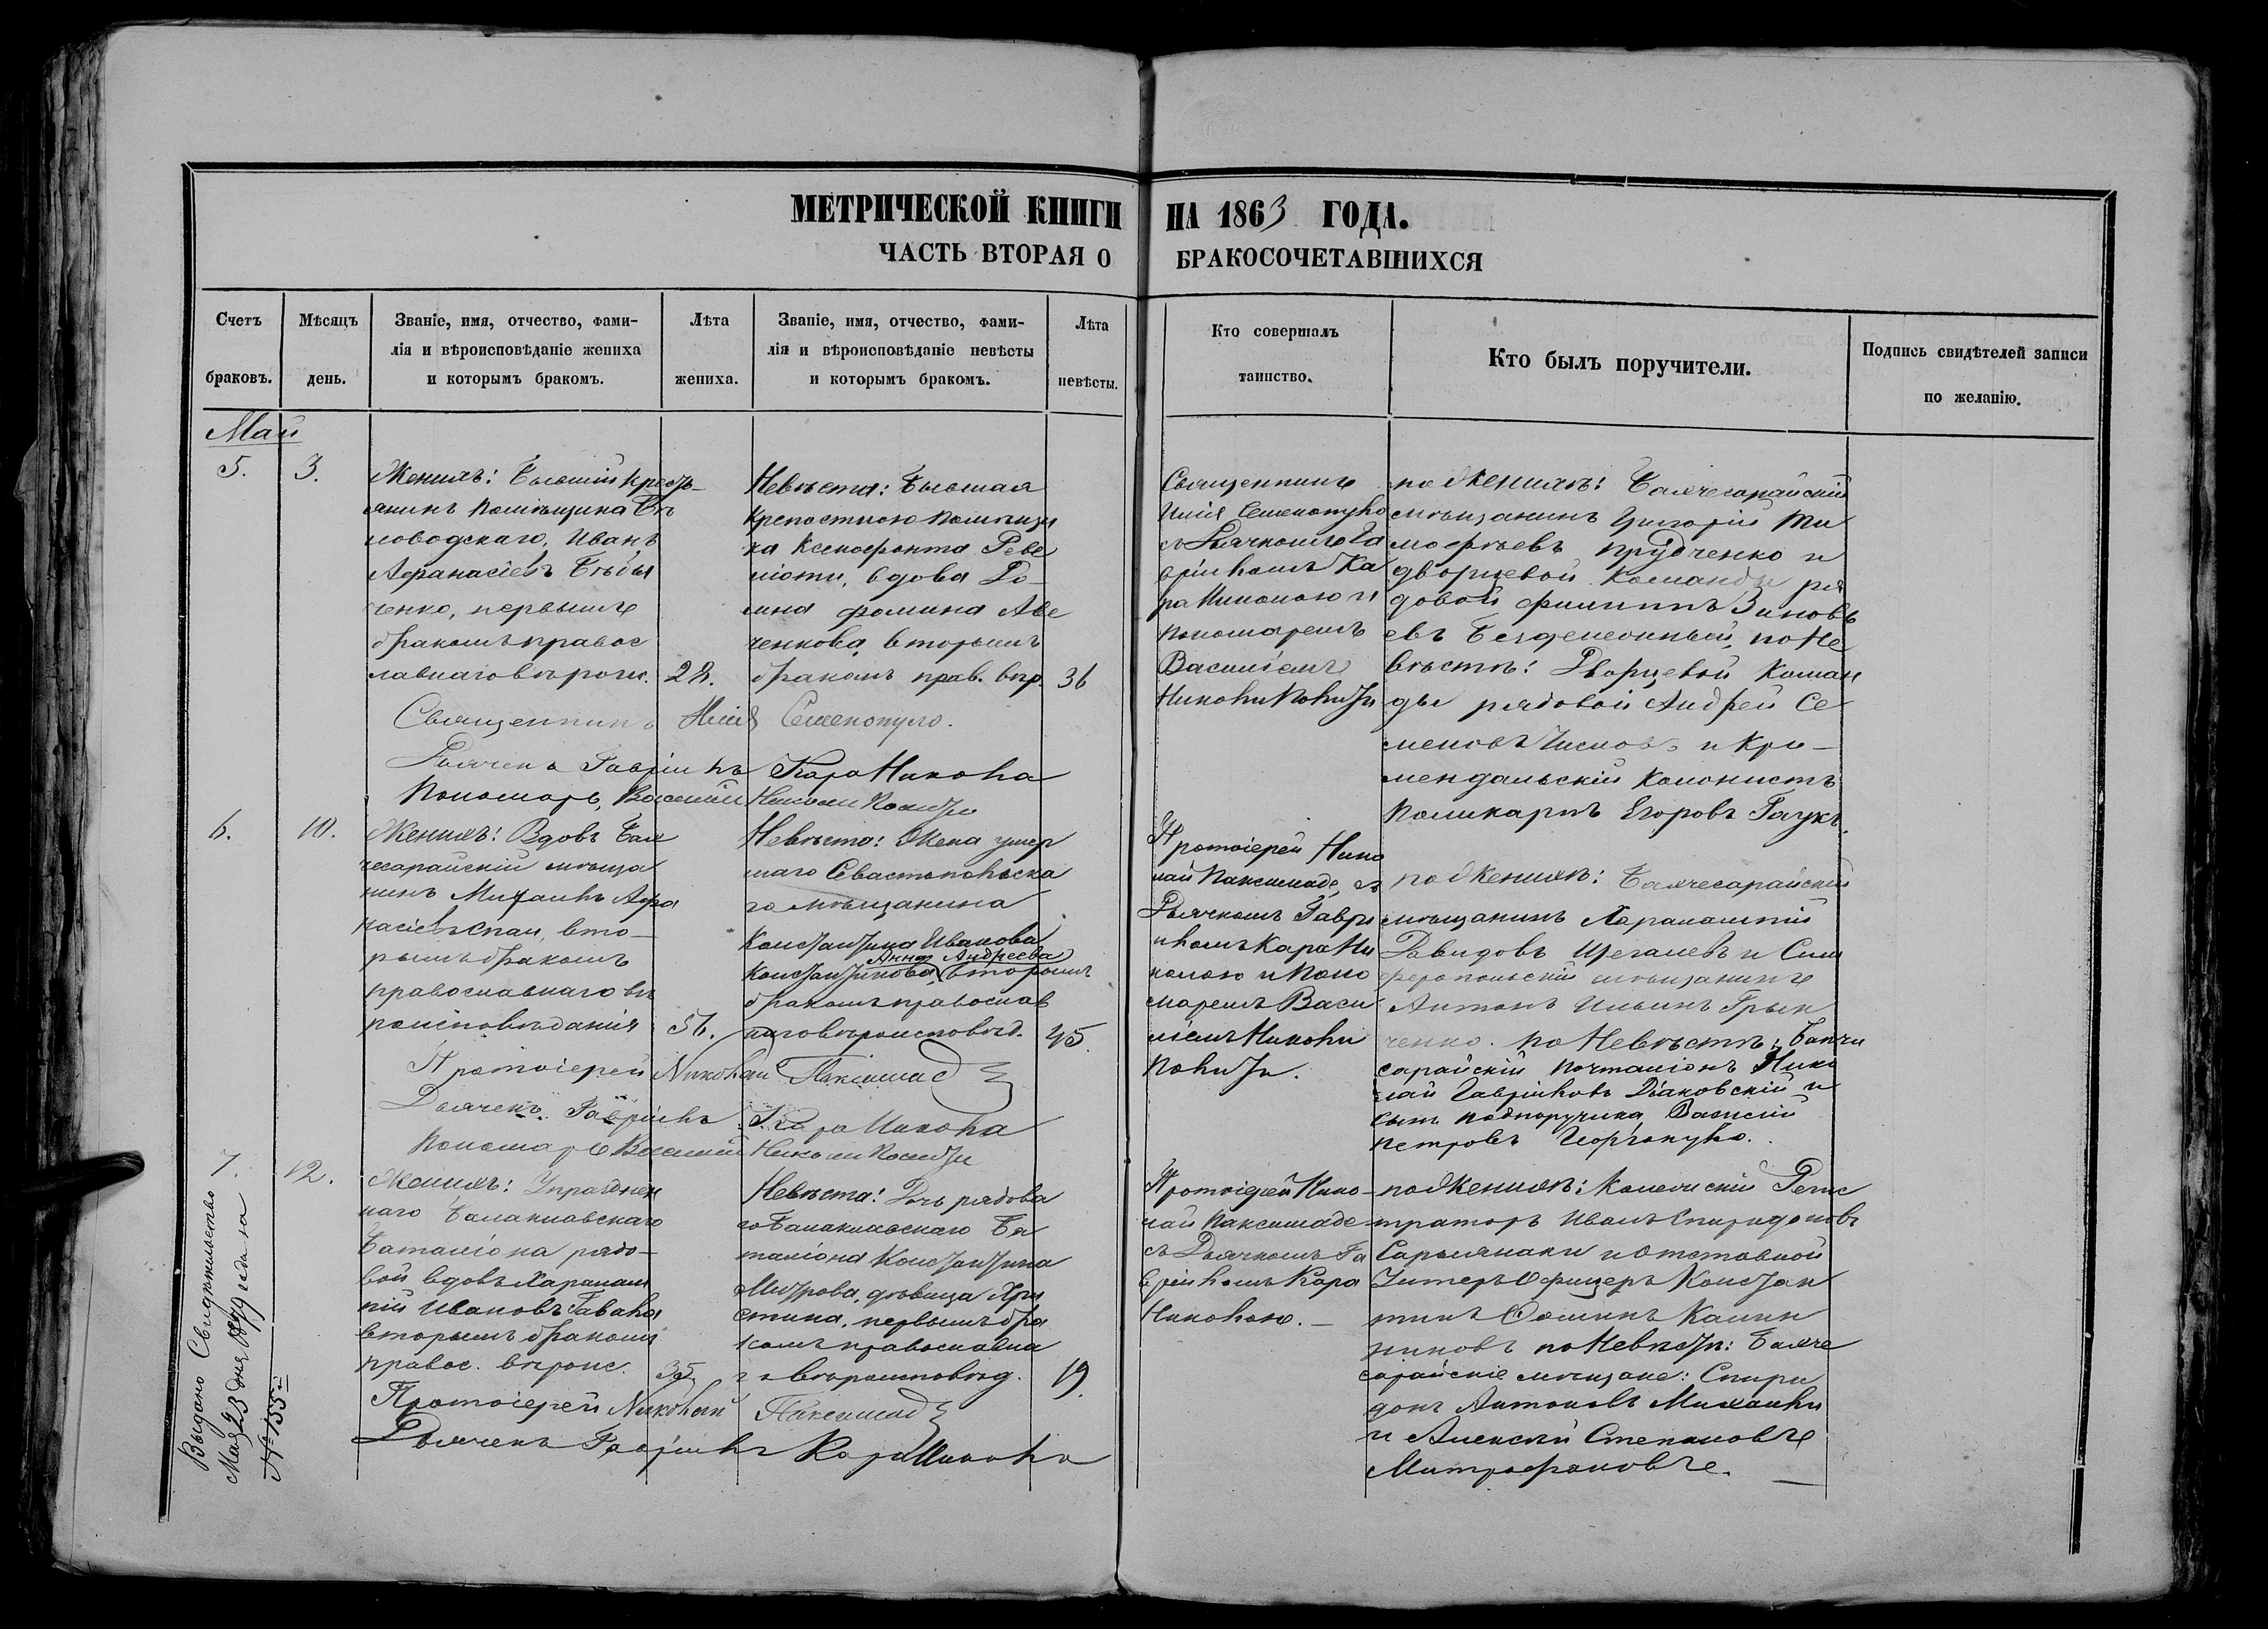 МЕТРИЧЕСКОЙ КНИГИ НА 1863 ГОДА.
ЧАСТЬ ВТОРАЯ О БРАКОСОЧЕТАВШИХСЯ
Счетъ браковъ.
Мѣсяцъ день.
Званіе, имя, отчество, фами-
лія и вѣроисповѣданіе жениха
и которымъ бракомъ.
Лѣта жениха.
Званіе, имя, отчество, фами-
лія и вѣроисповѣданіе невѣсты
и которымъ бракомъ.
Лѣта невѣсты.
Кто совершалъ
таинство.
Кто былъ поручители.
Подпись свидѣтелей записи
по желанію.
Май
5.
3.
Женихъ: Бывшій кресть-
янинъ помѣщика
Иванъ
Афанасіевъ
ченко, первымъ
бракомъ правос
лавнаго вѣроис.
28.
Невѣста: Бывшая
крепостною помѣщи
ка Ксенофонта Реве
ліоти, вдова До-
мна Фомина Аве
ченкова, вторымъ
бракомъ прав. вѣр.
36
Священникъ
Илія Семенопуло
съ Дьячкомъ Га
вріиломъ Ка
ра Николою и
Пономаремъ
Василіемъ
Николи Полизи
по Женихѣ: Бахчесарайскій
мѣщанинъ Григорій Ти
мофѣевъ Прудченко и
дворцевой команды ря
довой Филиппъ Зиновь
евъ Безденежный, по Не
вѣстѣ: Дворцевой Коман
ды рядовой Андрей Се
меновъ и Кро-
мендальскій колонистъ
Поликарпъ Егоровъ
Священникъ Илія Семенопуло.
Дьячекъ Гавріилъ Кара Никола
Пономарь, Василій Николи Полизи
6.
10.
Женихъ: Вдовъ Бах
чесарайскій мѣща
нинъ Михаилъ Афа
насіевъ Спаи, вто-
рымъ бракомъ
православнаго вѣ
роисповѣданія
56.
Невѣста: Жена умер
шаго Севастопольска
го мѣщанина
Константина Иванова
Анна Андреева
Константинова, вторымъ
бракомъ православ
наго вѣроисповѣд.
45.
Протоіерей Нико
лай Паксимаде, съ
Дьячкомъ Гаври
иломъ Кара Ни
колою и Поно
маремъ Васи
ліемъ Николи
Полизи.
по Женихѣ: Бахчесарайскій
мѣщанинъ Харалампій
Давидовъ Щегалевъ и Сим
феропольскій мѣщанинъ
Антонъ Ильинъ Грын
ченко. по Невѣстѣ: Бахчи
сарайскій почталіонъ Нико
лай Гавріиловъ Дьаковскій и
сынъ подпоручика, Василій
Петровъ Георгопуло.
Протоіерей Николай Паксимад
Дьячекъ Гавріилъ Кара Никола
Пономарь Василій Николи Полизи
7.
12.
Женихъ: Упразднен
наго Балаклавскаго
Баталіона рядо-
вой вдовъ Харалам
пій Ивановъ Гавала
вторымъ бракомъ
правос. вѣроис.
35
Невѣста: Дочь рядова
го Балаклавскаго Ба
таліона Константина
Митрова, дѣвица Хри
стина, первымъ бра
комъ православна
го вѣроисповѣд.
19.
Протоіерей Нико-
лай Паксимаде
съ Дьячкомъ Га
вріиломъ Кара
Николою.
по Женихѣ: Колежскій Регис
траторъ Иванъ Спиридоновъ
Сарыянаки и отставной
Унтеръ Офицеръ Констан
тинъ Фоминъ Калин
никовъ по Невѣстѣ: Бахче
сарайскіе мѣщане: Спири
донъ Антоновъ Михаили
и Алексѣй Степановъ
Митрофановъ.
Протоіерей Николай Паксимад
Дьячекъ Гавріилъ Кара Никола
Выдано Свидѣтельство
Мая 23 дня 1879 года за
№ 155